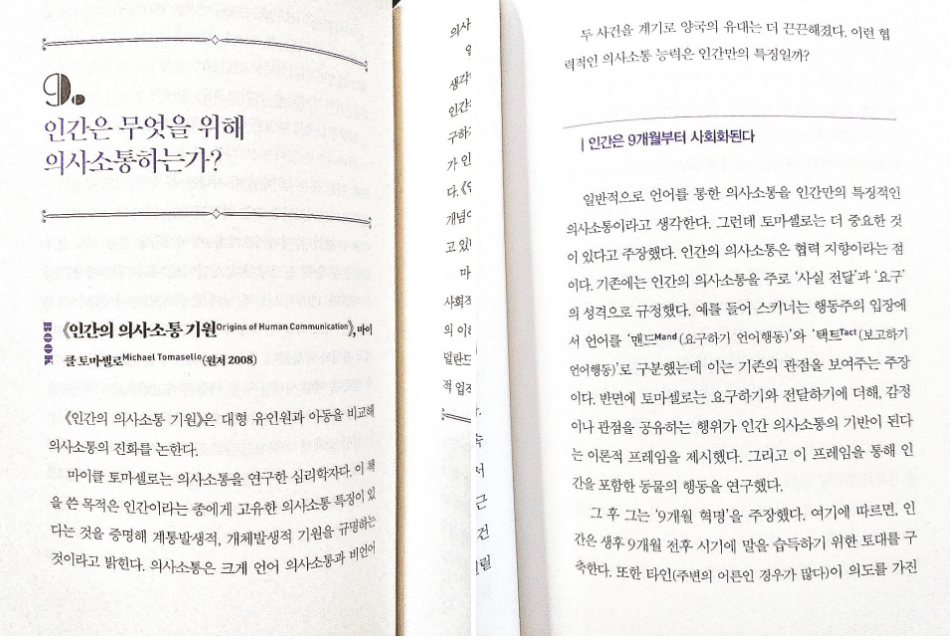 9.
인간은 무엇을 위해
의사소통하는가?
BOOK
《인간의 의사소통 기원Origins of Human Communication》, 마이
클 토마셀로Michael Tomasello(원저 2008)
《인간의 의사소통 기원》은 대형 유인원과 아동을 비교해
의사소통의 진화를 논한다.
마이클 토마셀로는 의사소통을 연구한 심리학자다. 이 책
을 쓴 목적은 인간이라는 종에게 고유한 의사소통 특징이 있
다는 것을 증명해 계통발생적, 개체발생적 기원을 규명하는
것이라고 밝힌다. 의사소통은 크게 언어 의사소통과 비언어
의사
생각
인간
구하
가 인
다. 《인
개념
고 있
마
사회적
의 이
덜란드
적 입
속
서
근
건
릴
두 사건을 계기로 양국의 유대는 더 끈끈해졌다. 이런 협
력적인 의사소통 능력은 인간만의 특징일까?
| 인간은 9개월부터 사회화된다
일반적으로 언어를 통한 의사소통을 인간만의 특징적인
의사소통이라고 생각한다. 그런데 토마셀로는 더 중요한 것
이 있다고 주장했다. 인간의 의사소통은 협력 지향이라는 점
이다. 기존에는 인간의 의사소통을 주로 ‘사실 전달’과 ‘요구’
의 성격으로 규정했다. 예를 들어 스키너는 행동주의 입장에
서 언어를 ‘맨드Mand(요구하기 언어행동)’와 ‘택트Tact(보고하기
언어행동)’로 구분했는데 이는 기존의 관점을 보여주는 주장
이다. 반면에 토마셀로는 요구하기와 전달하기에 더해, 감정
이나 관점을 공유하는 행위가 인간 의사소통의 기반이 된다
는 이론적 프레임을 제시했다. 그리고 이 프레임을 통해 인
간을 포함한 동물의 행동을 연구했다.
그 후 그는 ‘9개월 혁명’을 주장했다. 여기에 따르면, 인
간은 생후 9개월 전후 시기에 말을 습득하기 위한 토대를 구
축한다. 또한 타인(주변의 어른인 경우가 많다)이 의도를 가진